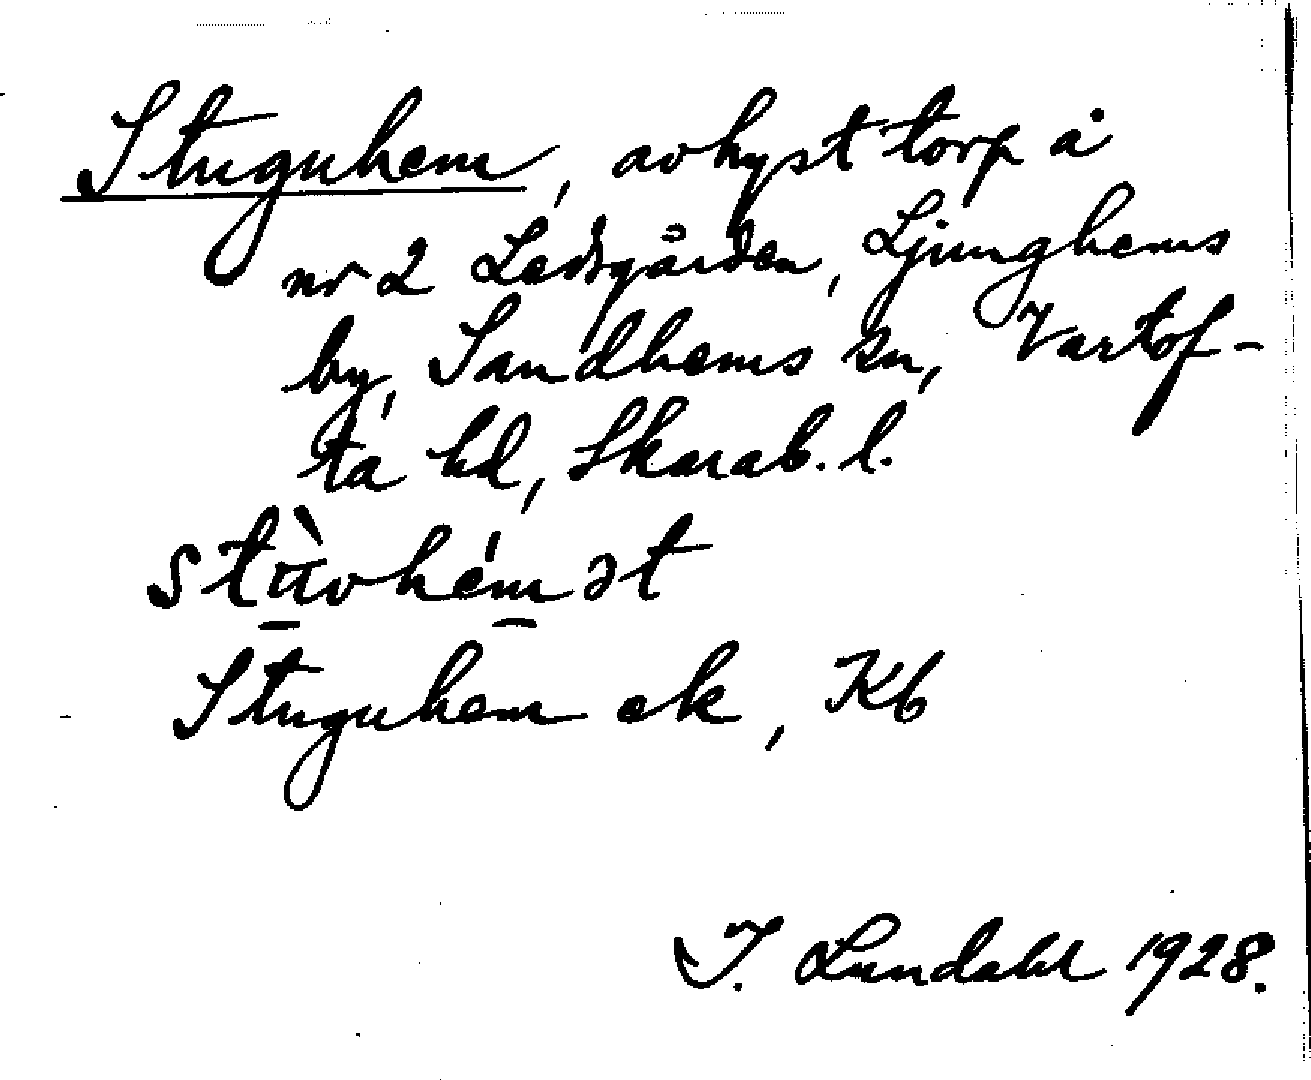 Stuguhem, avhyst torp å
nr 2 Ledsgården, Ljunghems
by, Sandhems sn, Vartof-
ta hd, Skarab. l.
stù̠vhém̠ət
Stuguhem ek, Kb
I. Lundahl 1928.